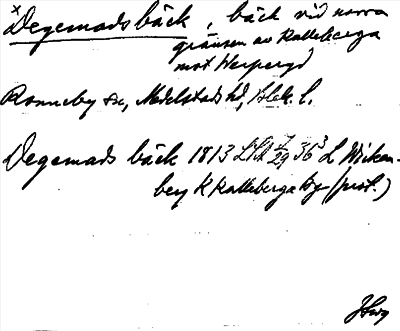 × Degemads bäck, bäck vid norra
gränsen av Kalleberga
mot Werperyd
Ronneby sn, Medelstads hd, Blek. l.
Degemads bäck 1813 LSA 29 36³ L Wicken-
berg K Kalleberga by (prot.)